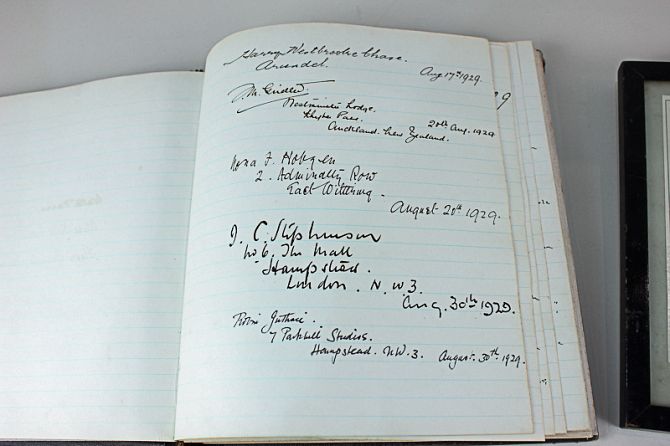 Harvey Westbrooke Chase.
Arundel.
Aug 17th 1929.
J. M.
Westminster Lodge.
Khyber Pass.
Auckland. New Zealand.
20th Aug. 1929
Nona F. Hobgen
2. Admiralty Row
East Wittering.
August 20th 1929.
J. C. Stephenson
No 6. The Mall
Hampstead.
London. N.W.3.
Aug. 30th 1929.
Robin Guthrie.
7 Parkhill Studios.
Hampstead. NW.3. August. 30th 1929.
9